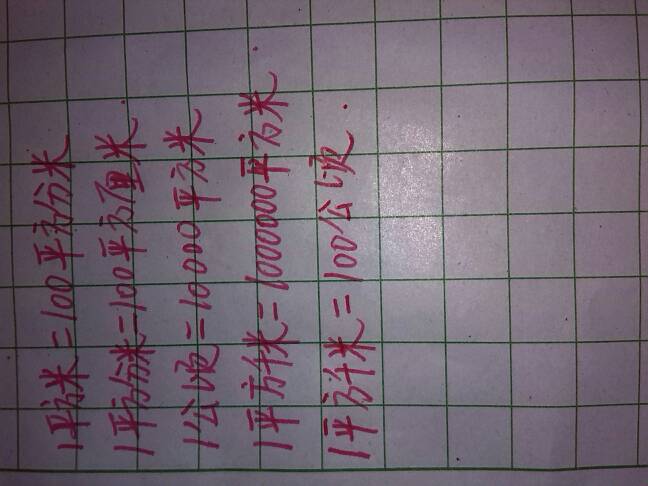 1平方米=100平方分米
1平方分米=100平方厘米.
1公顷=10000平方米
1平方千米=1000000平方米.
1平方千米=100公顷.